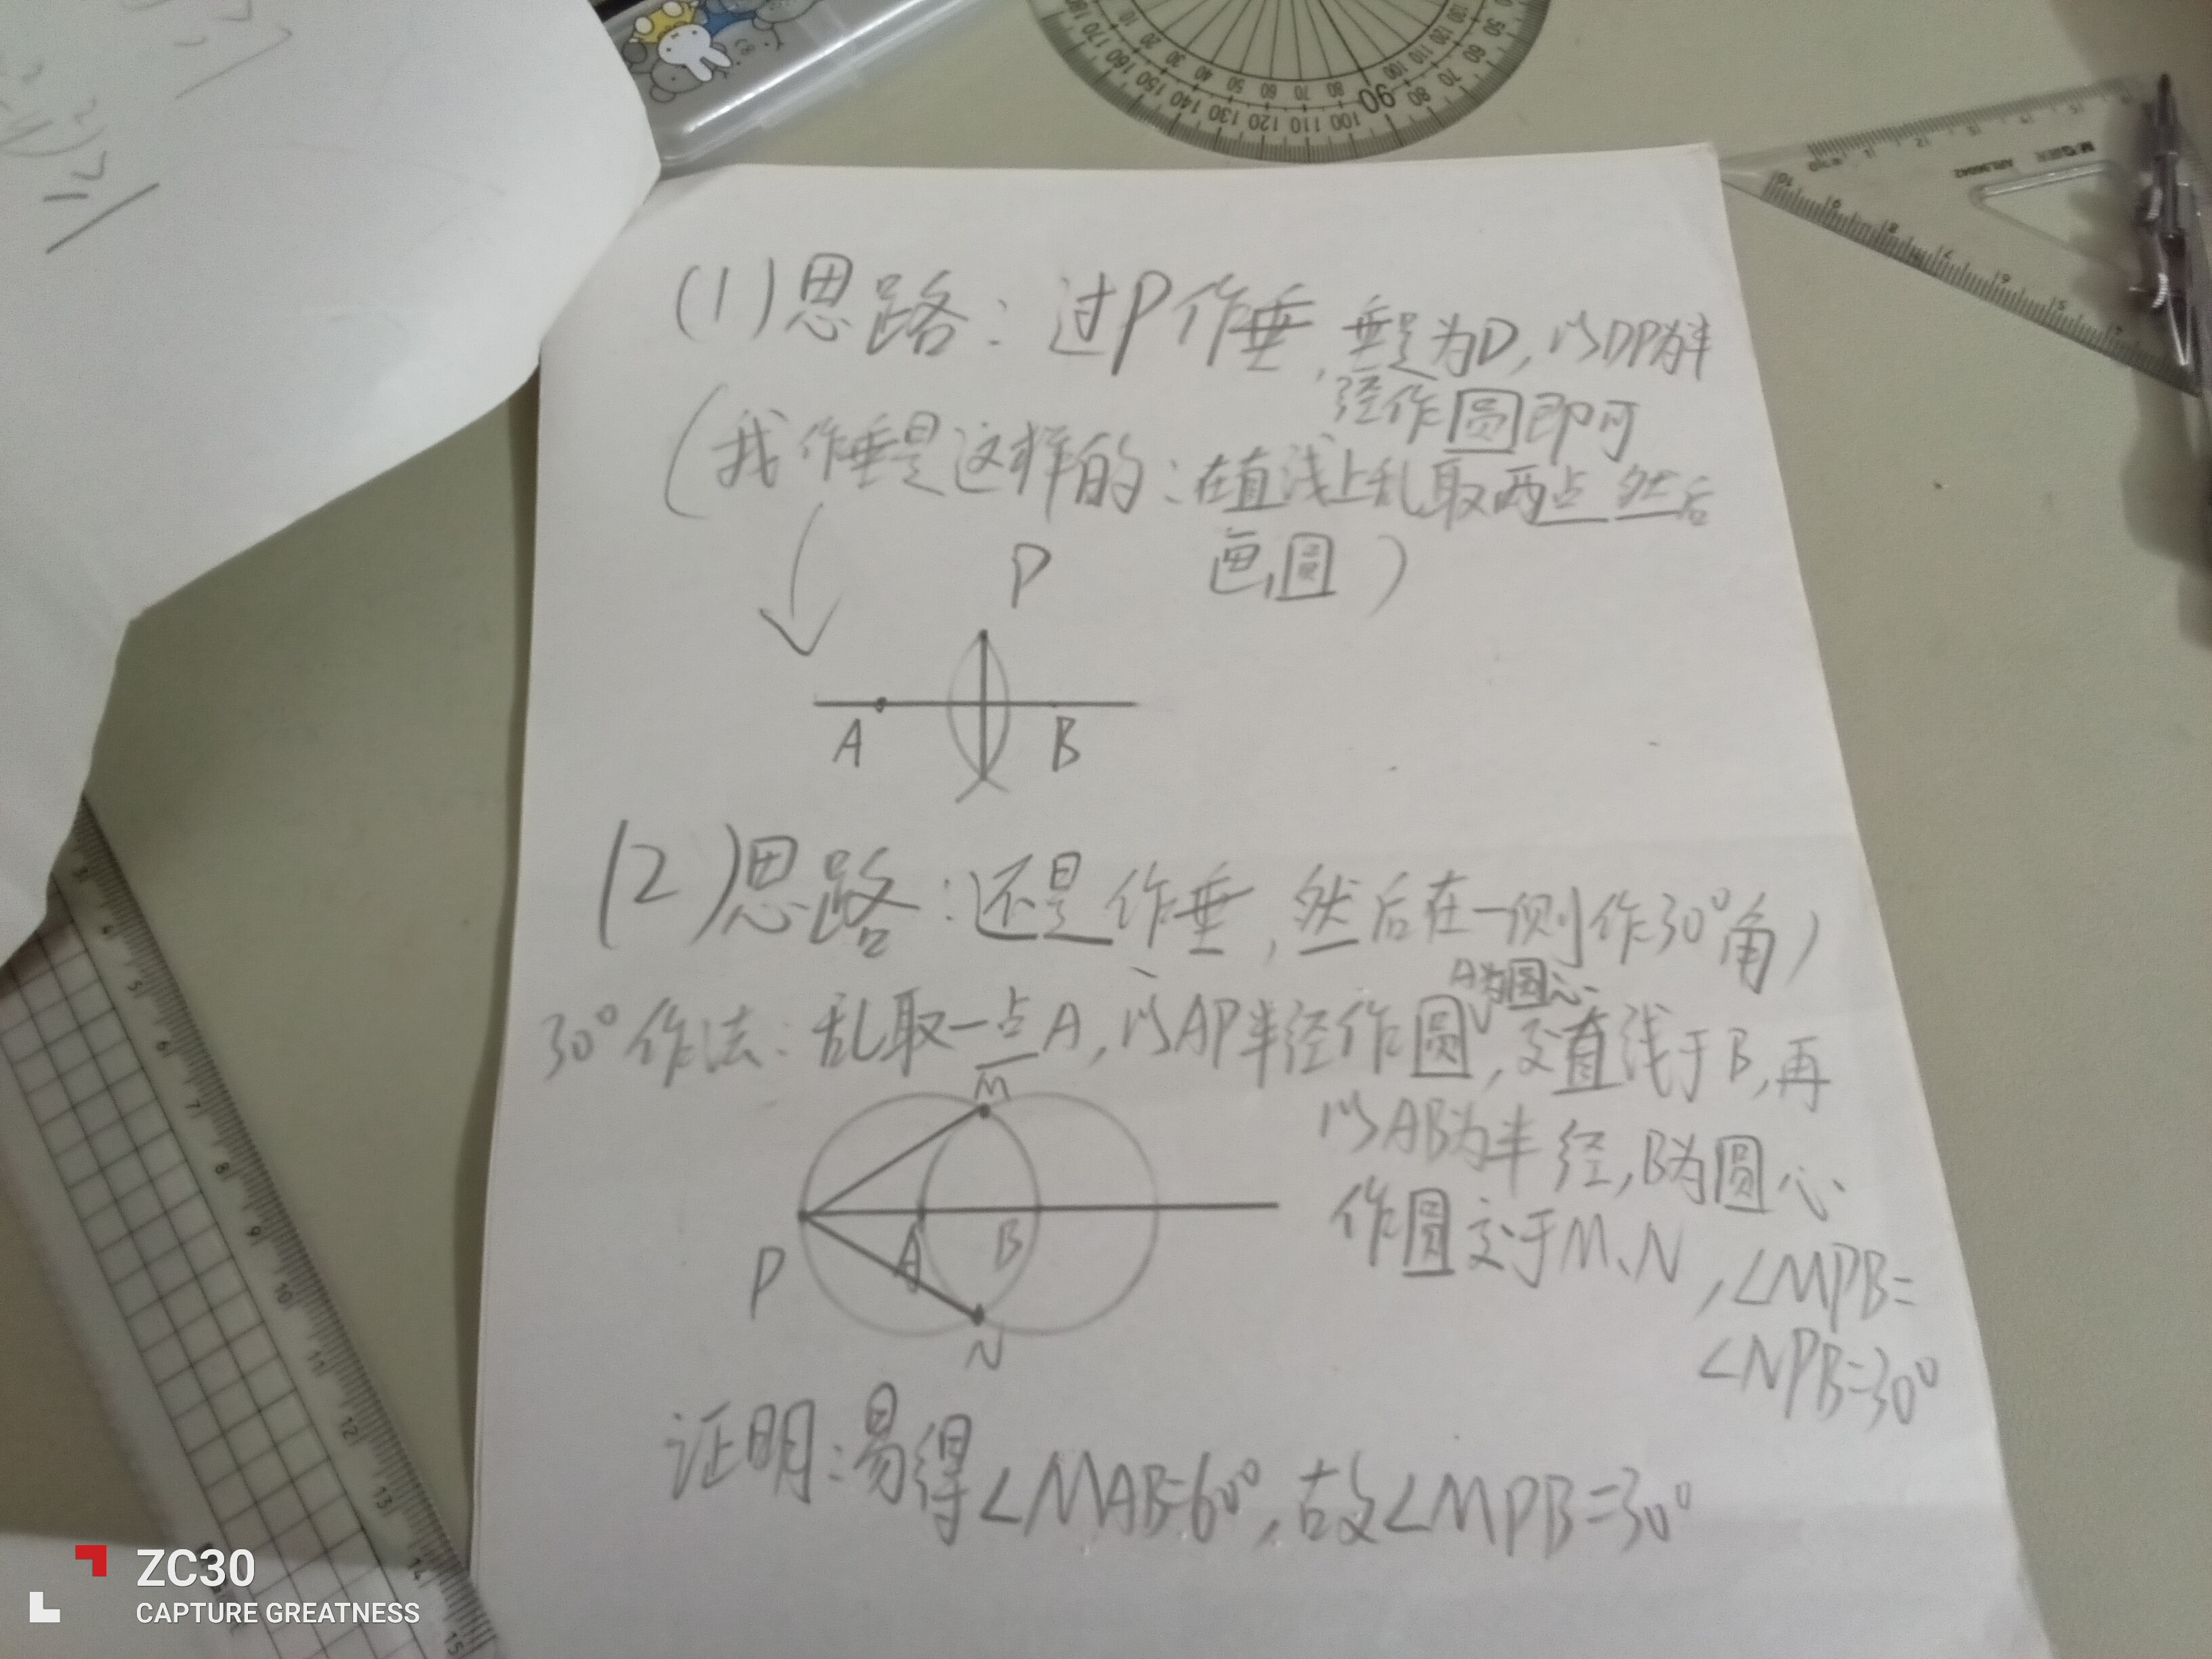 (1)思路：过P作垂，垂足为D，以DP为半
径作圆即可
(我作垂是这样的：在直线上乱取两点然后
画圆)
P
A B
(2)思路：还是作垂，然后在一侧作30°角)
A为圆心
30°作法：乱取一点A，以AP半径作圆，交直线于B，再
以AB为半径，B为圆心
作圆交于M、N，∠MPB=
∠NPB=30°
M
P A B
N
证明：易得∠MAB=60°，故∠MPB=30°
ZC30
CAPTURE GREATNESS